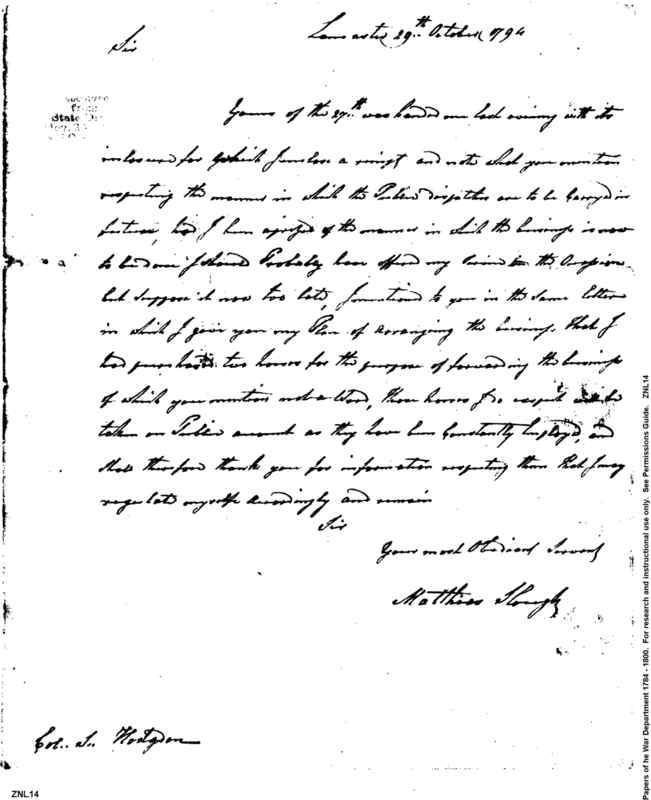 Lancaster 29th October 1794
Sir
State
Yours of the 27th was handed me last evening with its
inclosures for which I inclose a receipt and note what you mention
respecting the manner in which the Public dispatches are to be Carryed in
future, had I been aprized of the manner in which the business is now
to be done I should Probably have offered my Service on the Occasion
but suppose it now too late, I mentioned to you in the same letter
in which I gave you my Plan of arranging the business that I
had purchased two horses for the purpose of forwarding the business
of which you mention not a Word, these horses I do expect will be
taken on Public account as they have been Constantly Employed, and
shall therefore thank you for information respecting them that I may
regulate myself accordingly and remain
Sir
Your most Obedient Servant
Matthias Slough
Col. S. Hodgdon
ZNL14
Papers of he War Department 1784 - 1800. For research and instructional use only. See Permissions Guide. ZNL14